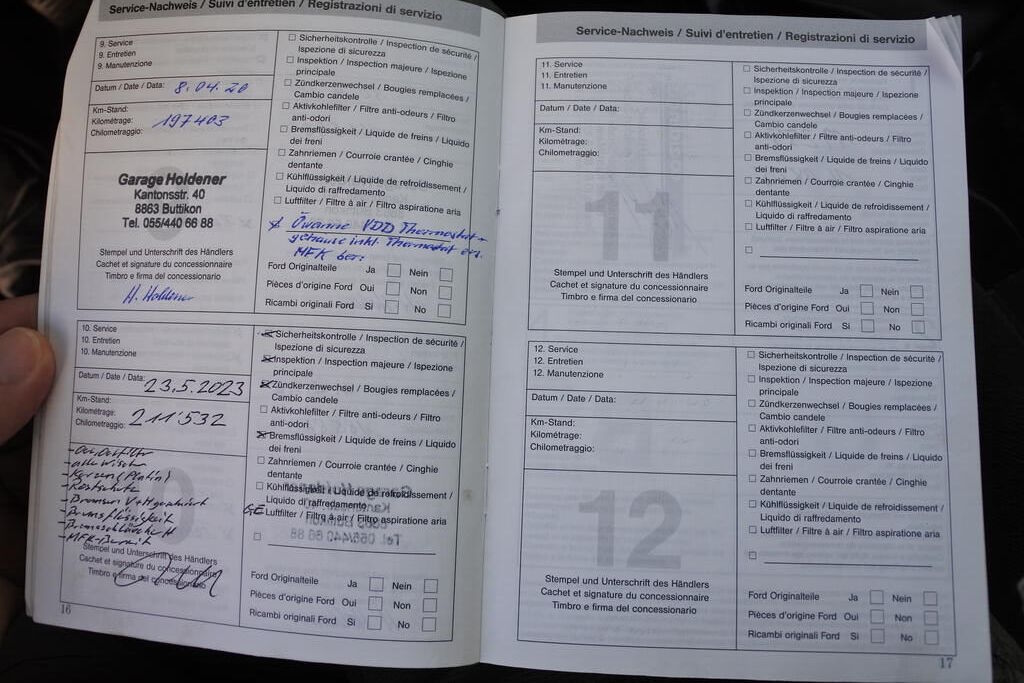 Service-Nachweis / Suivi d'entretien / Registrazioni di servizio
9. Service
9. Entretien
9. Manutenzione
Datum / Date / Data: 8.04.20
Km-Stand:
Kilométrage: 197403
Chilometraggio:
Garage Holdener
Kantonsstr. 40
8863 Buttikon
Tel. 055/440 66 88
Stempel und Unterschrift des Händlers
Cachet et signature du concessionnaire
Timbro e firma del concessionario
H. Holdener
☐ Sicherheitskontrolle / Inspection de sécurité /
Ispezione di sicurezza
☐ Inspektion / Inspection majeure / Ispezione
principale
☐ Zündkerzenwechsel / Bougies remplacées /
Cambio candele
☐ Aktivkohlefilter / Filtre anti-odeurs / Filtro
anti-odori
☐ Bremsflüssigkeit / Liquide de freins / Liquido
dei freni
☐ Zahnriemen / Courroie crantée / Cinghie
dentante
☐ Kühlflüssigkeit / Liquide de refroidissement /
Liquido di raffredamento
☐ Luftfilter / Filtre à air / Filtro aspiratione aria
VDD Thermostat-
gehäuse inkl. Thermostat
MFK
Ford Originalteile Ja ☐ Nein ☐
Pièces d'origine Ford Oui ☐ Non ☐
Ricambi originali Ford Si ☐ No ☐
10. Service
10. Entretien
10. Manutenzione
Datum / Date / Data: 23.5.2023
Km-Stand:
Kilométrage: 211'532
Chilometraggio:
- alle Wischer
- Kerzen (Platin)
- Rostschutz
- Bremsen V+H
- Bremsflüssigkeit
- Bremsschläuche H
- MFK-Bereit
Stempel und Unterschrift des Händlers
Cachet et signature du concessionnaire
Timbro e firma del concessionario
☒ Sicherheitskontrolle / Inspection de sécurité /
Ispezione di sicurezza
☒ Inspektion / Inspection majeure / Ispezione
principale
☒ Zündkerzenwechsel / Bougies remplacées /
Cambio candele
☐ Aktivkohlefilter / Filtre anti-odeurs / Filtro
anti-odori
☒ Bremsflüssigkeit / Liquide de freins / Liquido
dei freni
☐ Zahnriemen / Courroie crantée / Cinghie
dentante
☐ Kühlflüssigkeit / Liquide de refroidissement /
Liquido di raffredamento
Luftfilter / Filtre à air / Filtro aspiratione aria
☐
Ford Originalteile Ja ☐ Nein ☐
Pièces d'origine Ford Oui ☐ Non ☐
Ricambi originali Ford Si ☐ No ☐
16
Service-Nachweis / Suivi d'entretien / Registrazioni di servizio
11. Service
11. Entretien
11. Manutenzione
Datum / Date / Data:
Km-Stand:
Kilométrage:
Chilometraggio:
11
Stempel und Unterschrift des Händlers
Cachet et signature du concessionnaire
Timbro e firma del concessionario
☐ Sicherheitskontrolle / Inspection de sécurité /
Ispezione di sicurezza
☐ Inspektion / Inspection majeure / Ispezione
principale
☐ Zündkerzenwechsel / Bougies remplacées /
Cambio candele
☐ Aktivkohlefilter / Filtre anti-odeurs / Filtro
anti-odori
☐ Bremsflüssigkeit / Liquide de freins / Liquido
dei freni
☐ Zahnriemen / Courroie crantée / Cinghie
dentante
☐ Kühlflüssigkeit / Liquide de refroidissement /
Liquido di raffredamento
☐ Luftfilter / Filtre à air / Filtro aspiratione aria
☐
Ford Originalteile Ja ☐ Nein ☐
Pièces d'origine Ford Oui ☐ Non ☐
Ricambi originali Ford Si ☐ No ☐
12. Service
12. Entretien
12. Manutenzione
Datum / Date / Data:
Km-Stand:
Kilométrage:
Chilometraggio:
12
Stempel und Unterschrift des Händlers
Cachet et signature du concessionnaire
Timbro e firma del concessionario
☐ Sicherheitskontrolle / Inspection de sécurité /
Ispezione di sicurezza
☐ Inspektion / Inspection majeure / Ispezione
principale
☐ Zündkerzenwechsel / Bougies remplacées /
Cambio candele
☐ Aktivkohlefilter / Filtre anti-odeurs / Filtro
anti-odori
☐ Bremsflüssigkeit / Liquide de freins / Liquido
dei freni
☐ Zahnriemen / Courroie crantée / Cinghie
dentante
☐ Kühlflüssigkeit / Liquide de refroidissement /
Liquido di raffredamento
☐ Luftfilter / Filtre à air / Filtro aspiratione aria
☐
Ford Originalteile Ja ☐ Nein ☐
Pièces d'origine Ford Oui ☐ Non ☐
Ricambi originali Ford Si ☐ No ☐
17